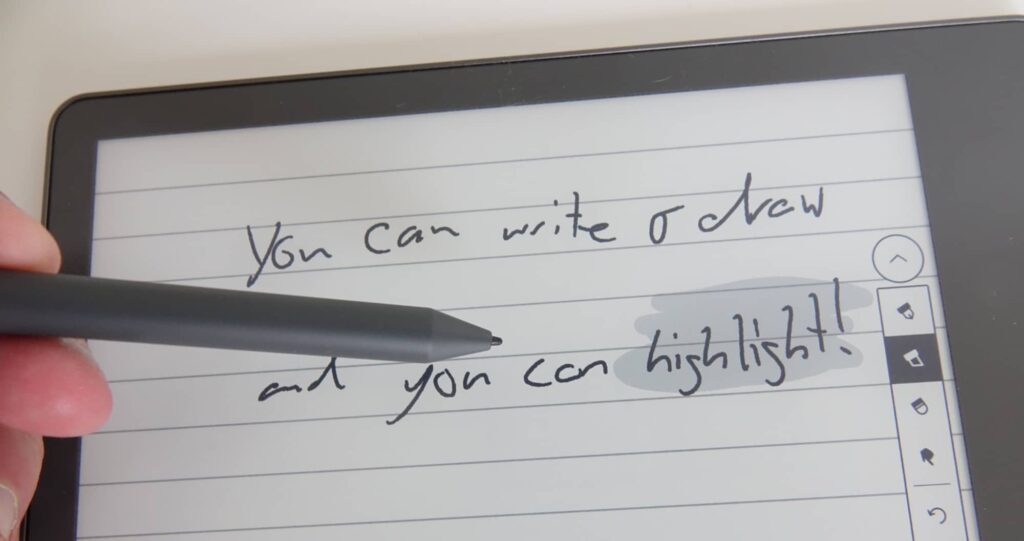 You can write or draw
and you can highlight!